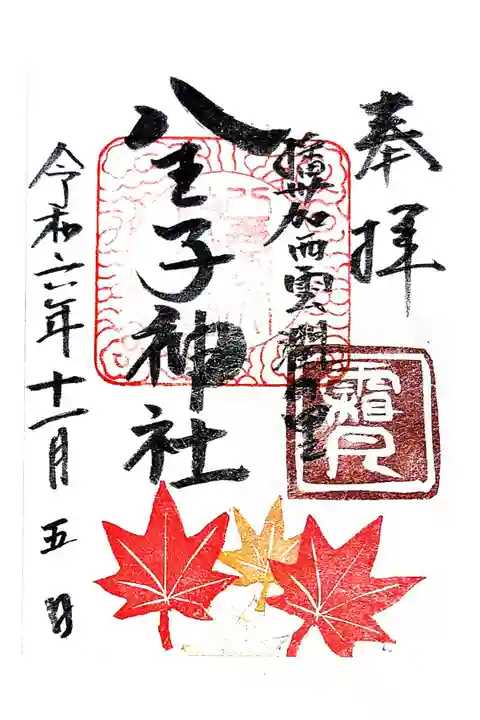 奉拝
播州加西雲潤里
霜月
八王子神社
令和六年十一月五日